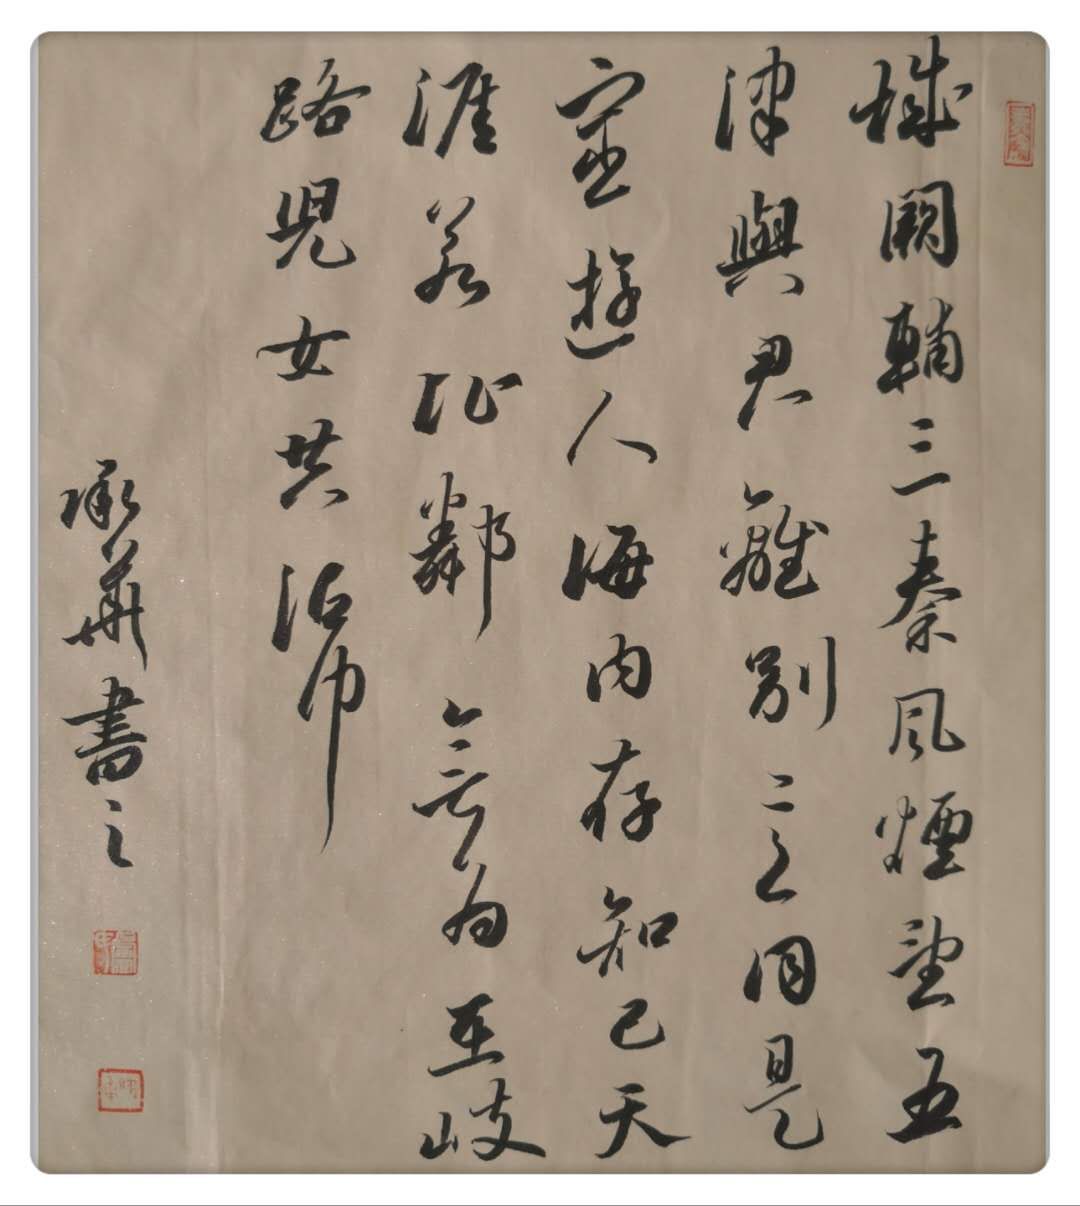 城闕輔三秦風煙望五
津與君離別意同是
宦遊人海內存知己天
涯若比鄰無為在歧
路兒女共沾巾
承華書之